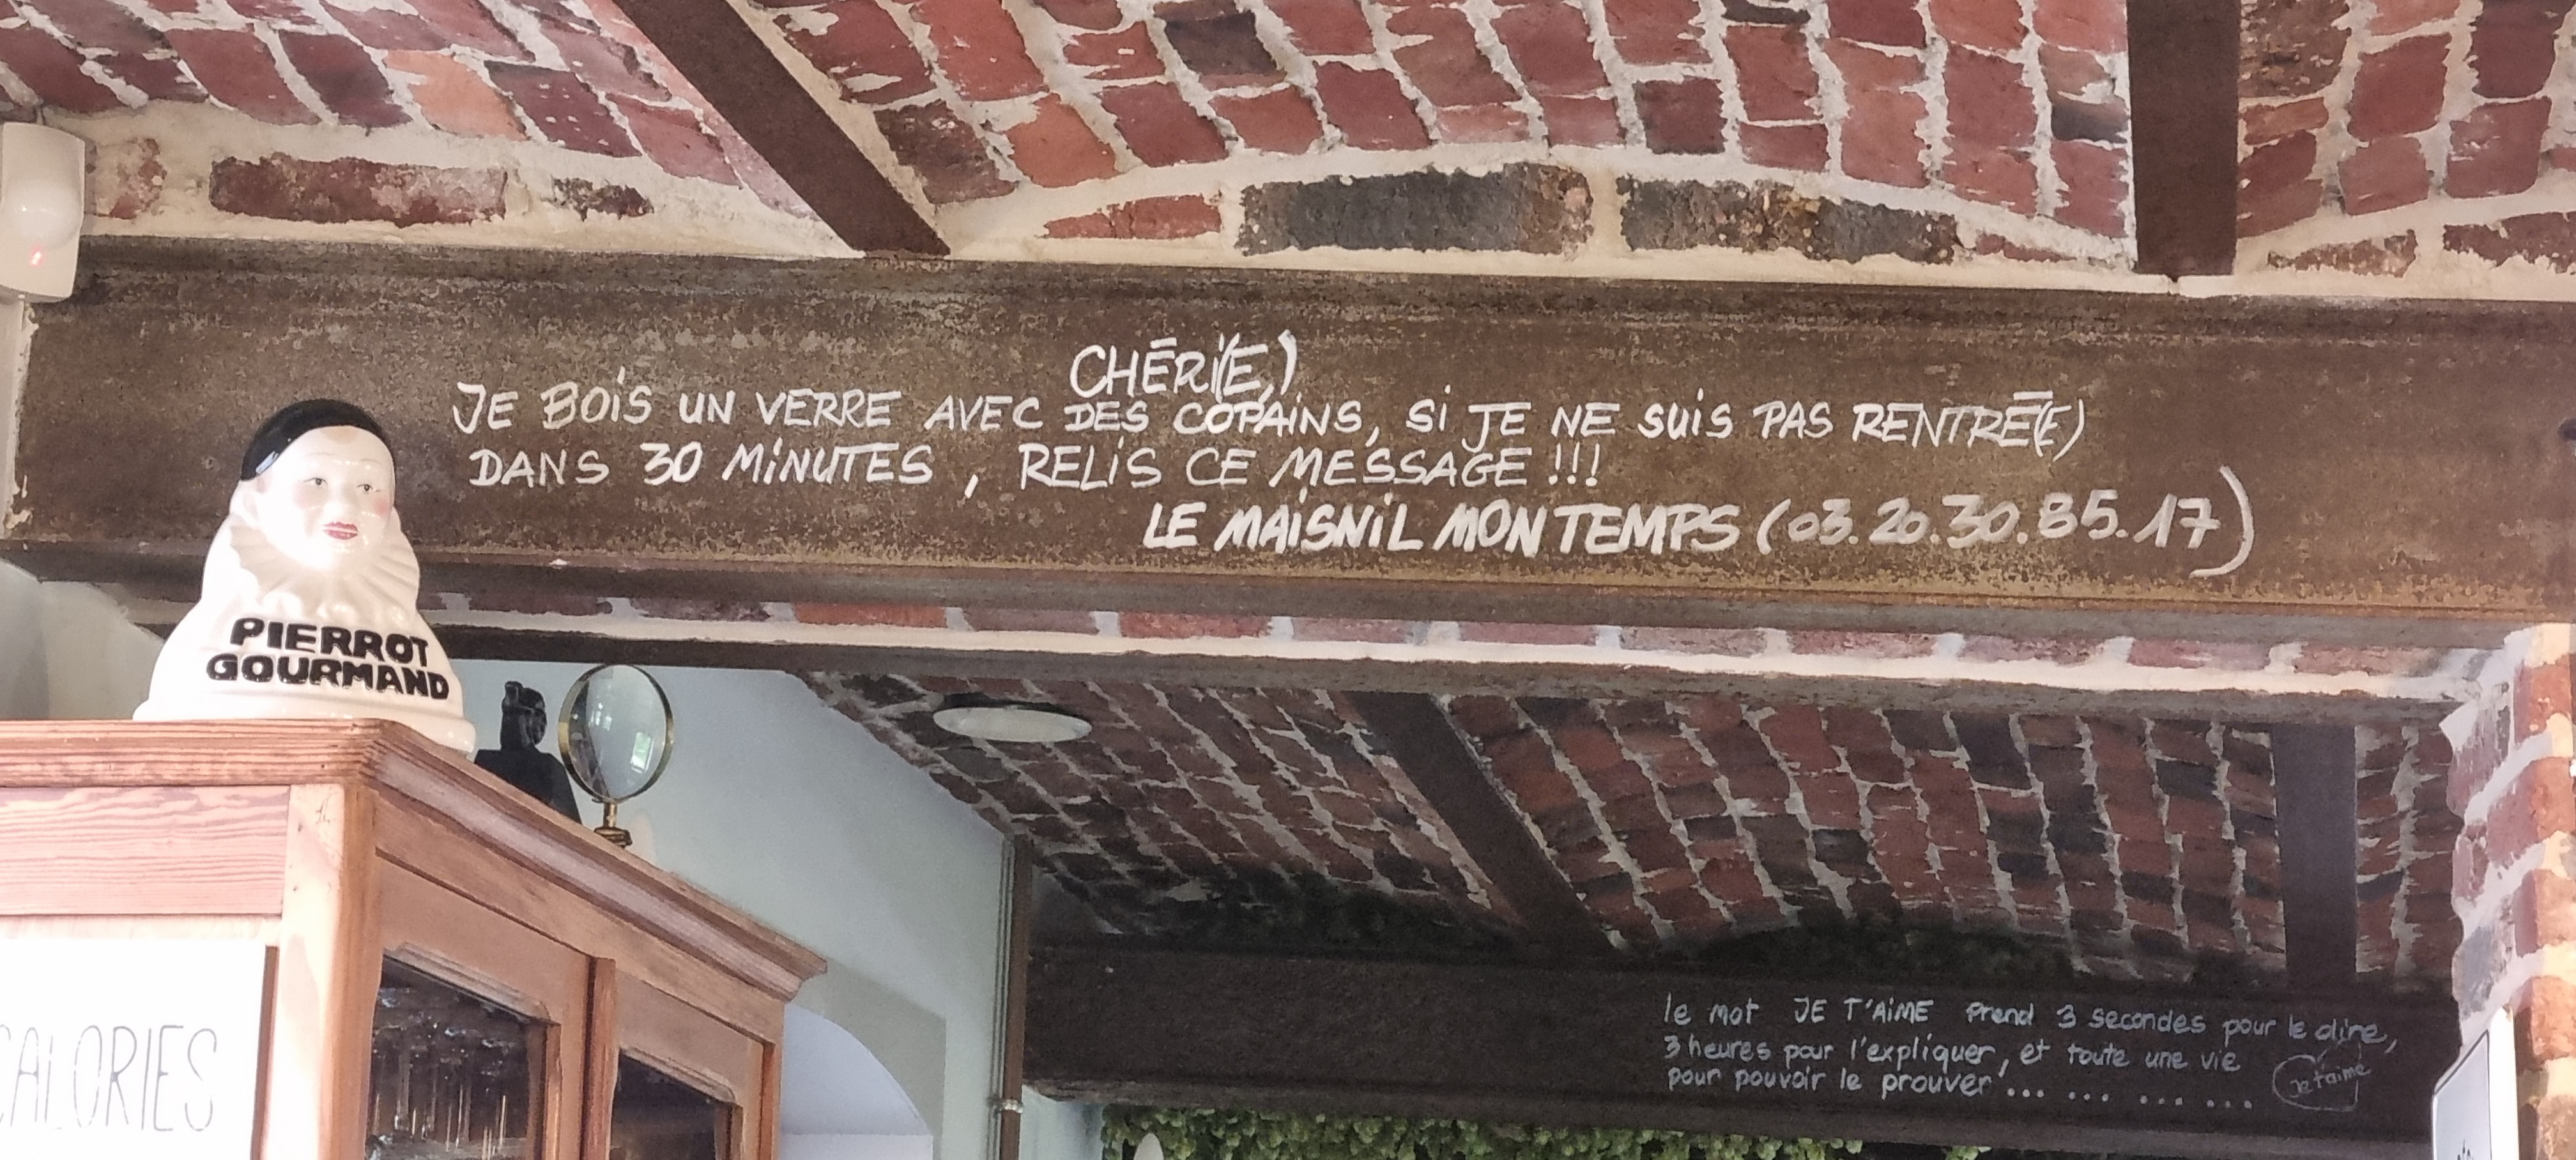 CHÉRI(E,)
JE BOIS UN VERRE AVEC DES COPAINS, SI JE NE SUIS PAS RENTRÉ(E)
DANS 30 MINUTES, RELIS CE MESSAGE !!!
LE MAISNIL MON TEMPS (03.20.30.85.17)
PIERROT
GOURMAND
le mot JE T'AIME prend 3 secondes pour le dire,
3 heures pour l'expliquer, et toute une vie
pour pouvoir le prouver... ... ... ...
Je t'aime
CALORIES